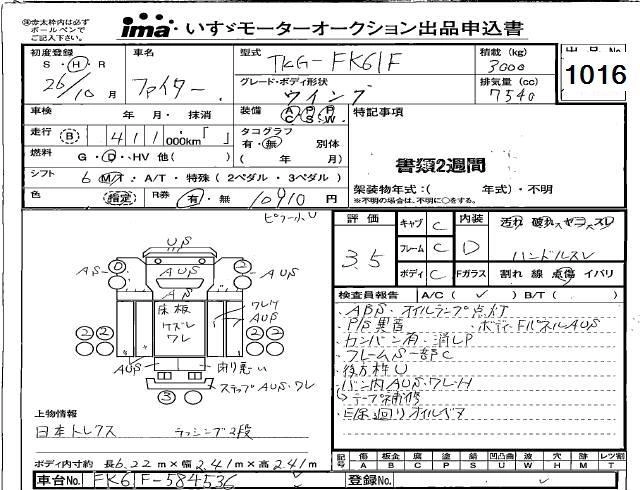 ※赤太枠内は必ず
ボールペンで
ご記入下さい。
ima いすゞモーターオークション出品申込書
初度登録 S・H・R 26/10月
車名 ファイター
型式 TKG-FK61F
グレード・ボディ形状 ウイング
積載 (kg) 3000
排気量 (cc) 7540
出品No. 1016
車検 年 月・ 抹消
装備 AC PS PW
特記事項
走行 B 411 000km「 」
タコグラフ 有・無 別体
( 年 月)
書類2週間
燃料 G・D・HV 他( )
シフト 6 M/T・A/T・特殊 (2ペダル・3ペダル)
架装物年式:( 年式)・不明
※不明の場合は、不明に○をする。
色 指定
R券 有・無 10910円
評価 3.5
キャブ C
フレーム C
ボディ C
内装 D
Fガラス 割れ 線 点傷 イバリ
汚れ 破れ ヤニ スレ
ハンドルスレ
検査員報告 A/C( ) B/T( )
・ABS・オイルランプ点灯
・P/S異音 ・ボディFパネルAUS
・カンバン有・消しP
・フレームS一部C
・後方枠U
・バン内AUS・ワレH
→テープ補修
US
AS
AUS
AUS
AS
床板
ケズレ
ワレ
ワレ
AUS
AUS
ステップAUS・ワレ
2 2 2 2
3
上物情報
日本トレクス ラッシング2段
ボディ内寸約 長6.22m×幅2.41m×高2.41m
記号 傷 A 板金 B 腐 C 塗 P 錆 S 凹凸曲 U 波 W 穴 H 跡 M レツ割 T
車台No. FK61F-584536
登録No.